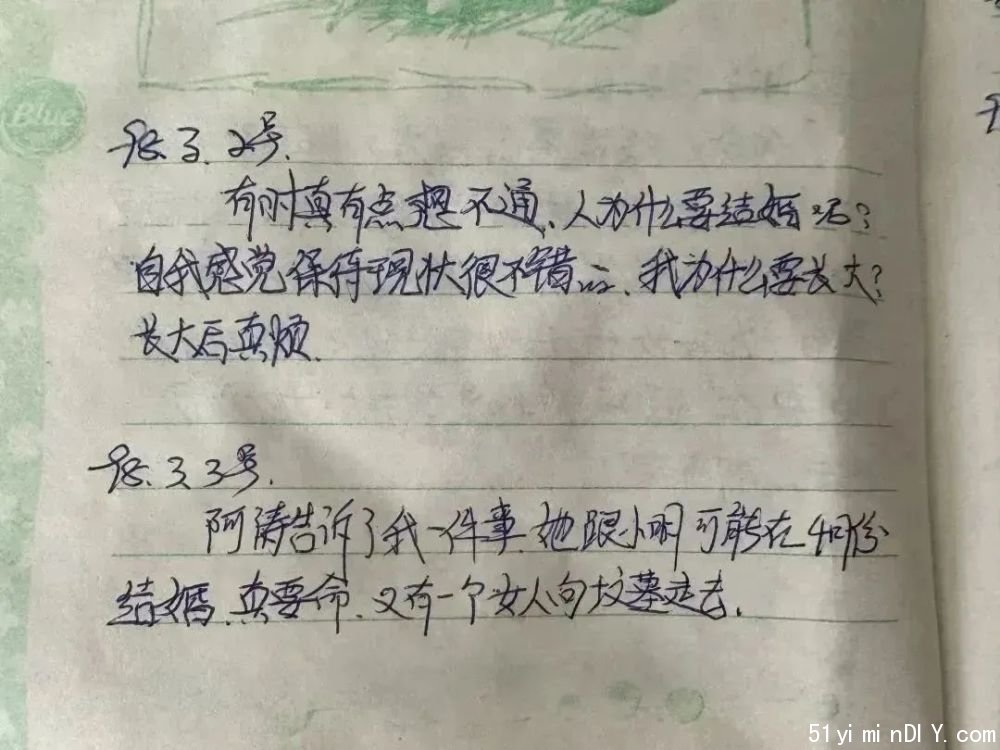 Blue
98.3.2号.
有时真有点想不通、人为什么要结婚呢?
自我感觉保持现状很不错……、我为什么要长大?
长大后真烦.
98.3.3号.
阿涛告诉了我一件事.她跟小明可能在4月份
结婚.真要命.又有一个女人向坟墓走去.
51yiminDIY.com